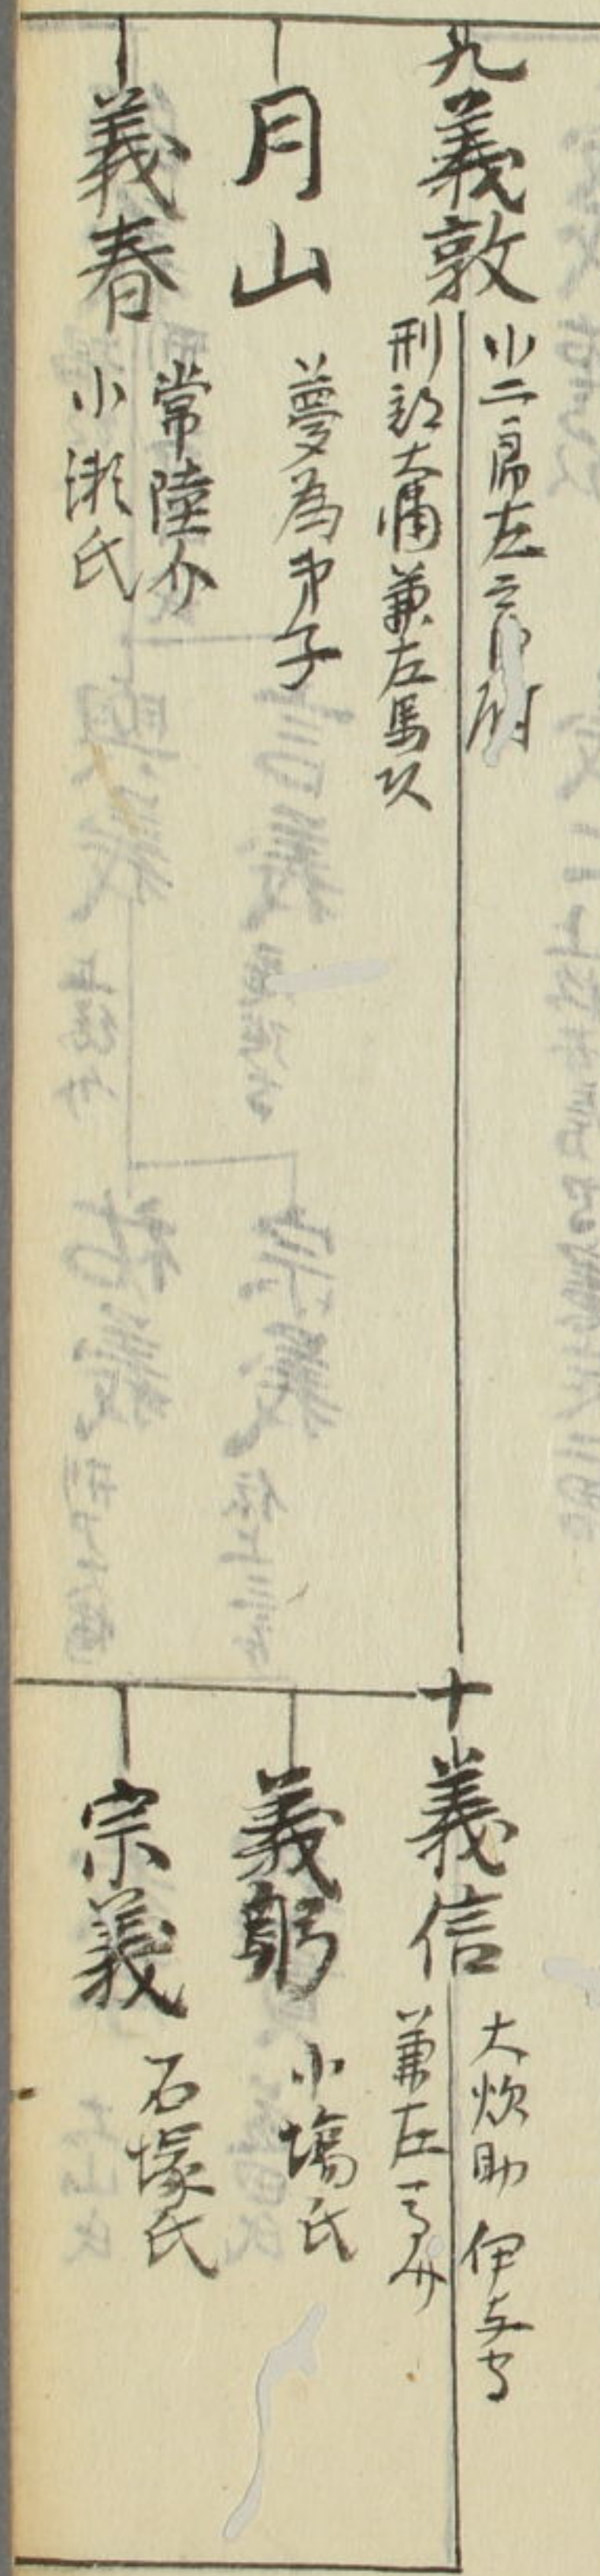 九義敦
小二郎左
刑部大輔兼左馬
月山
夢為弟子
義春
常陸介
小瀬氏
十義信
大炊助 伊
兼左
義躬
小塲氏
宗義
石塚氏